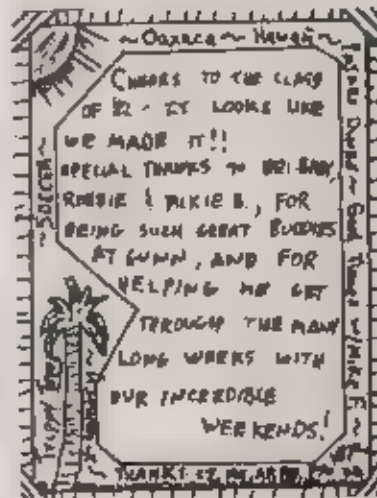 ~ Oaxaca ~ Hawaii ~
CHEERS TO THE CLASS
OF 82 - IT LOOKS LIKE
WE MADE IT!!
SPECIAL THANKS TO
ROBBIE & B., FOR
BEING SUCH GREAT BUDDIES
AT GUNN, AND FOR
HELPING ME GET
THROUGH THE MANY
LONG WEEKS WITH
OUR INCREDIBLE
WEEKENDS!
~SOCCER~
Good Times
THANKS